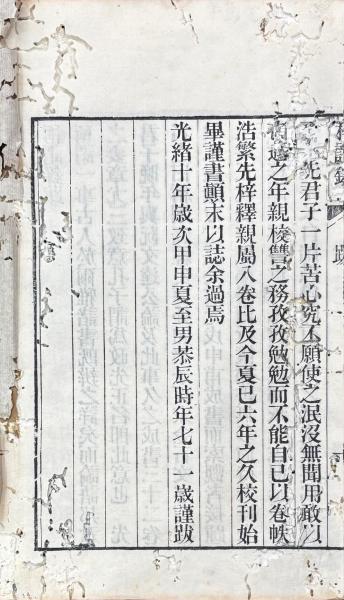 先君子一片苦心究不願使之泯沒無聞用敢以
之年親校讐之務孜孜勉勉而不能自已以卷帙
浩繁先梓釋親屬八卷比及今夏已六年之久校刊始
畢謹書顚末以誌余過焉
光緒十年歲次甲申夏至男恭辰時年七十一歲謹跋